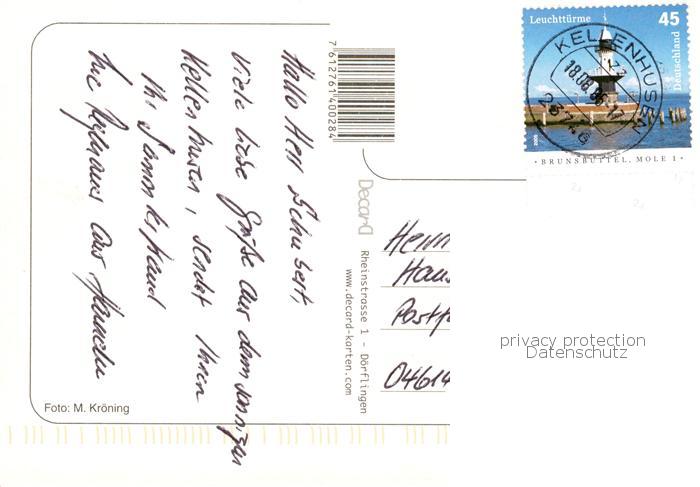 Hallo Herr Schubert,
viele liebe Grüße aus dem sonnigen
Kellenhusen, sendet Ihnen
Ihr
Ihre aus
Foto: M. Kröning
7612761400284
Decard
Rheinstrasse 1 - Dörflingen
www.decard-karten.com
Leuchttürme 45
Deutschland
2005
BRUNSBÜTTEL, MOLE 1
KELLENHUSEN
23746
Herrn
Hans
Postf
04614
privacy protection
Datenschutz